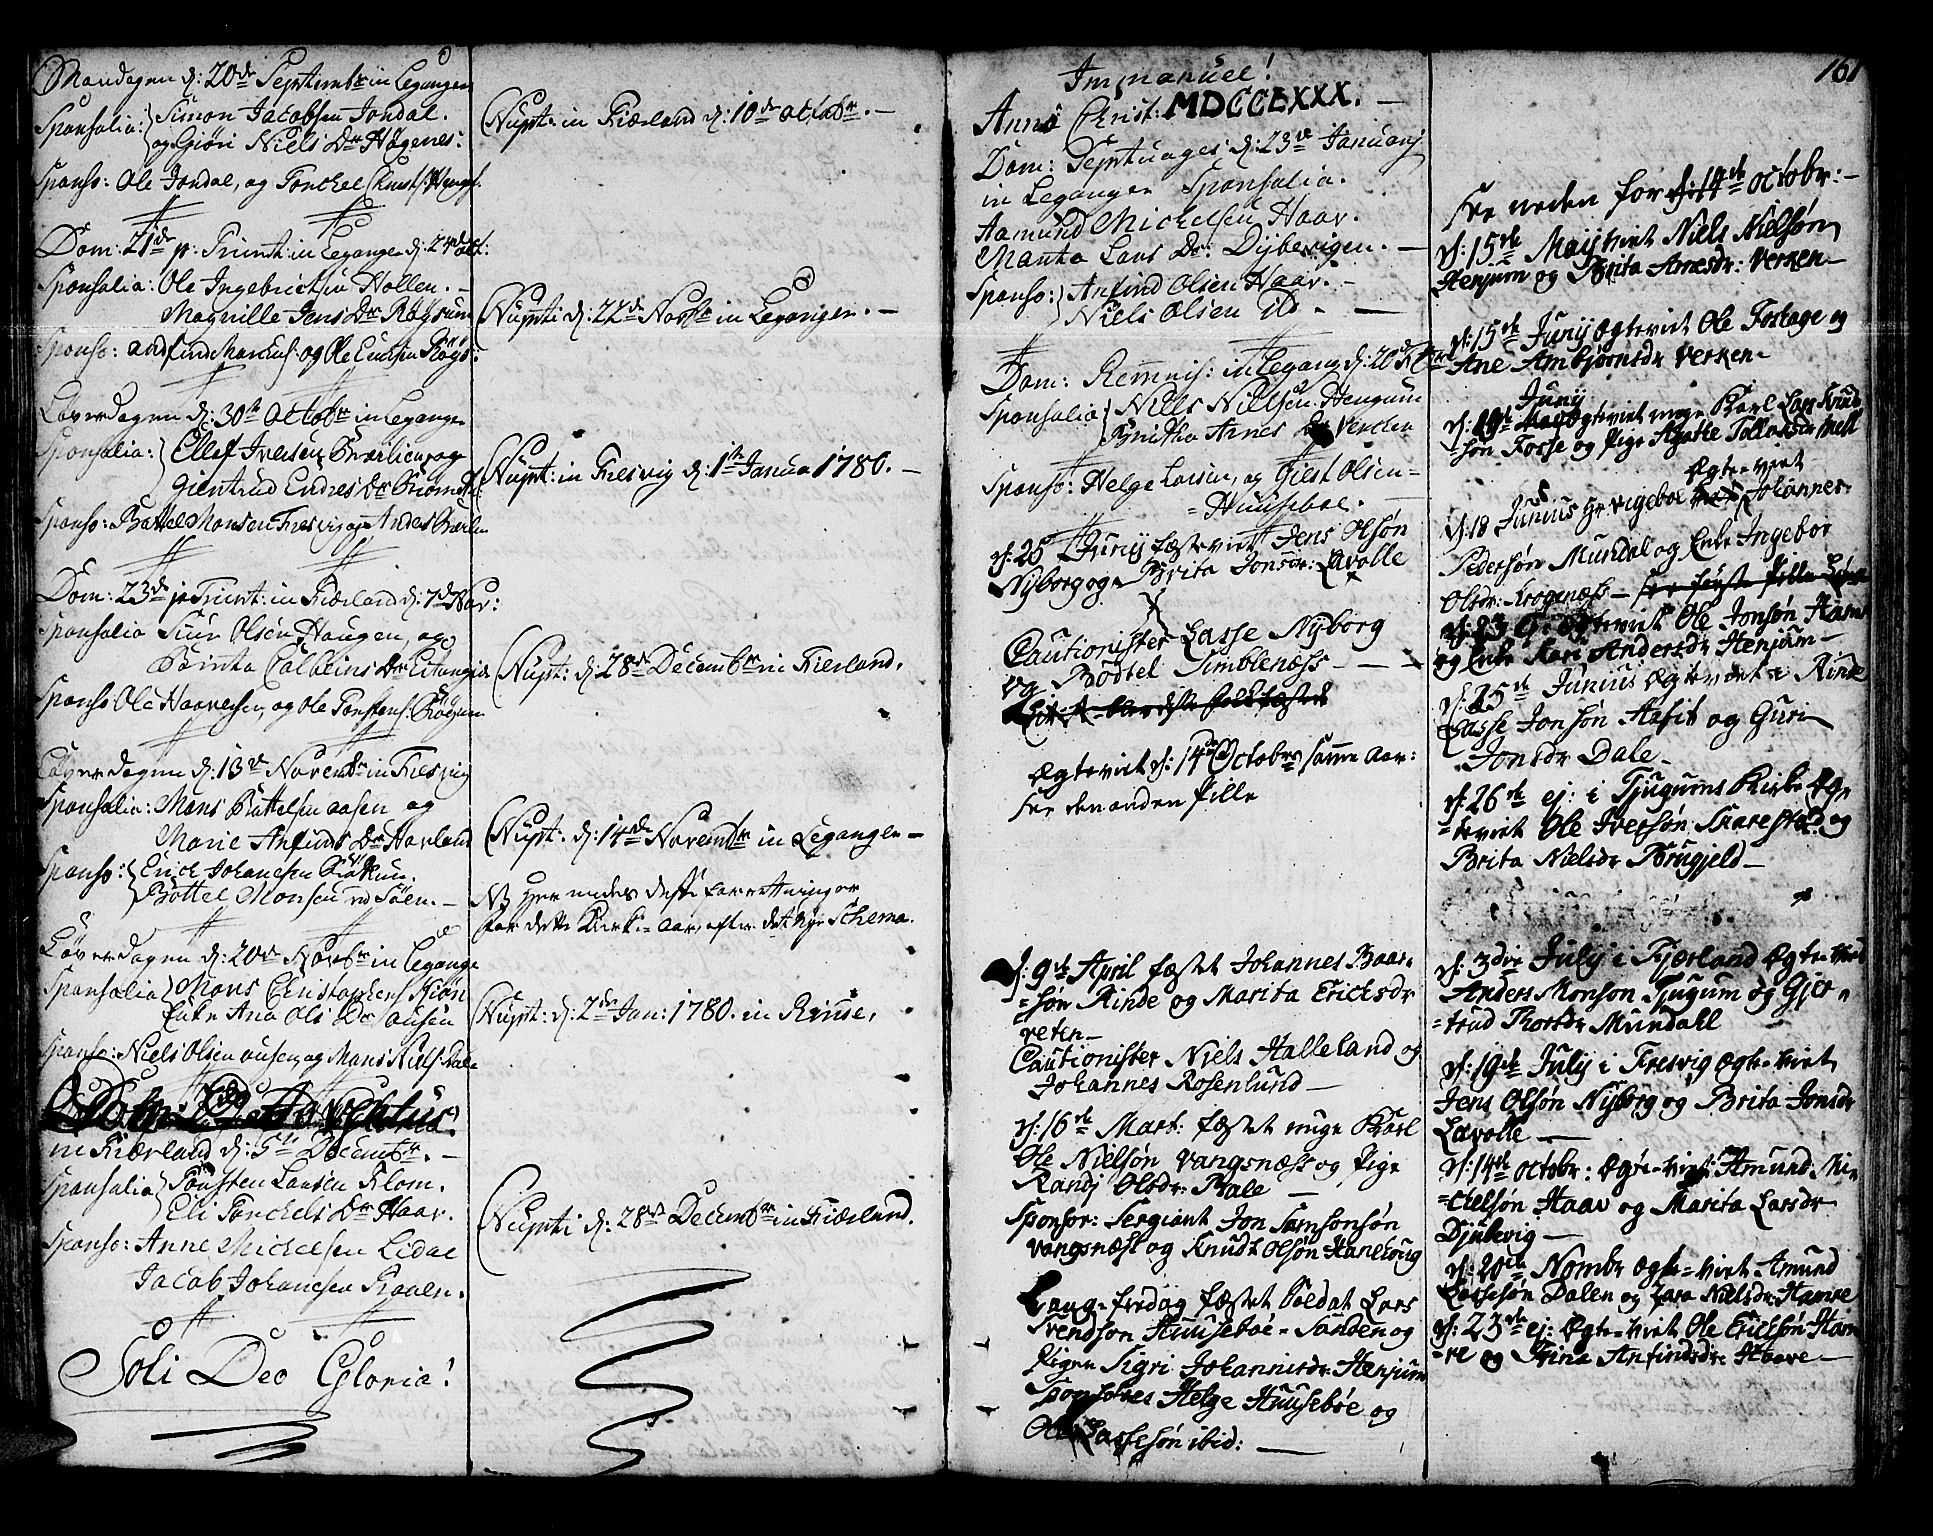 Mandagen d: 20de Septembr in Leganger
Sponsalia: Simon Jacobsen Jondal.
og Giøri Niels Dr Høgenes:
Sponso: Ole Jondal, og Torchel
Dom: 21de p: Trinit: in Leganger d: 24de oct:
Sponsalia: Ole Ingebrictsen Hollen. –
Magnille Jens Dr Røysum
Sponso: andfind Marcus: og Ole
Løverdagen d: 30te Octobr in Leganger
Sponsalia: Ellef Iversen Bærlien og
Giertrud Endres Dr
Sponso: Battel Monsen Fresvig og Anders
Dom: 23de p Trinit: in Fiærland d: 7de Nov:
Sponsalia Siur Olsen Haugen, og
Brita Dr
Sponso Ole Haaversen, og Ole Torstens: Røysum
Løverdagen d: 13de Novembr in Fresvig
Sponsalia: Mons Battelsen aasen og
Marie Anfinds Dr Havland
Sponso: Erich Johansen
Bottel Monsen
Løverdagen d: 20de Novbr in Leganger
Sponsalia Mons Christophers:
Enke Ana Ols Dr ausen
Sponso: Niels Olsen ausen, og Mons Niels: Dale
in Fiærland d: 5te Decembr. –
Sponsalia Torsten Larsen Flom.
Eli Torchels Dr Haar.
Sponso: Anne Michelsen Lidal
Jacob Johansen
Soli Deo Gloria!
Nupt: in Fiærland d: 10de octobr. –
Nupti d: 22de Novbr in Leganger. –
Nupt: in Fresvig d: 1te Janua 1780. –
Nupt: d: 28de Decembr in Fierland.
Nupt: d: 14de Novembr in Leganger –
NB Her endes disse forretninger
for dette Kirke-aar, efter det nye Schema.
Nupt: d: 2de Jan: 1780. in Rinde,
Nupti d: 28de Decembr in Fiærland.
161
Immanuel!
Anno Christ: MDCCLXXX. –
Dom: Septuages d: 23de Januarij
in Leganger Sponsalia.
Aamund Michelsen Haar.
Manta Lars Dr: Dybevigen. –
Sponso: Anfind Olsen Haar. –
Niels Olsen ibd. –
Dom: Reminis: in Legang d: 20de
Sponsalia Niels Nielsen Hengum
Britha Arnes Dr Verchen
Sponso: Helge Larsen, og Giest Olsen =
= Huuseboe.
d: 25 Junij fæsteviet Jens Olsøn
Nyborg og Brita Jonsdr: Lavolle
Cautionister Lasse Nyborg
og Bodtel Simblenæss –
Ægteviet d: 14de Octobr samme Aar:
see den anden Side
d: 9de April fæstet Johannes Baar=
=søn Rinde og Marita Ericksdr
veten –
Cautionister Niels Halleland og
Johannes Rosenlund –
d: 16de Mart: fæstet unge Karl
Ole Nielsøn Vangsnæss og Pige
Randj Olsdr: Bale –
Sponsor: Sergiant Jon Samsonsøn
Vangsnæss og Knudt Olsøn Hanehoug
Lang=fredag fæstet Soldat Lars
Svendson Huuseböe-Sanden og
Pigen Sigri Johannisdr: Henjum
Sponsores Helge Huusebøe og
Ole Lassesøn ibid: –
see neden for d: 14de octobr: –
d: 15de Maij viet Niels Nielsøn
Henjum og Brita Arnesdr: Verken –
d: 15de Junij Ægteviet Ole Foshage og
Ane Ambjørnsdr Verken –
Junij
d: 19de Ægteviet unge Karl Lars Knud
søn Fosse og Pige Agatte
Ægte-viet
d: 18 Junius Hr Vigeboe Johannes
Pedersøn Mundal og Enke Ingebor
Olsdr: Krogenæss –
d: 23 Ægteviet Ole Jonsøn Hamre
og Enke Kari Andersdr Henjum –
d: 25de Junius Ægteviet i Rinde
Lasse Jonsøn Aafit og Guri
Jonsdr Dale –
d: 26de ej: i Tjugums Kirke Ægte
=teviet Ole Iversøn Skarestad og
Brita Nielsdr Brugjeld –
d: 3die July i Fjærland Ægte-viet
Anders Monson Tjugum og Gjer=
=trud Thorsdr Mundall
d: 19de July i Fresvig Ægte-viet
Jens Olsøn Nyborg og Brita Jonsdr
Lavolle –
d: 14de octobr: Ægte-viet Amund Mi=
=chelsøn Haar og Marita Larsdr
Djubevig –
d: 20de Novmbr Ægte-viet Amund
Lassesøn Dalen og Zara Nielsdr: Hamre
d: 23de ej: Ægte-viet Ole Ericksøn Ham
=re og Trina Anfindsdr Haare –